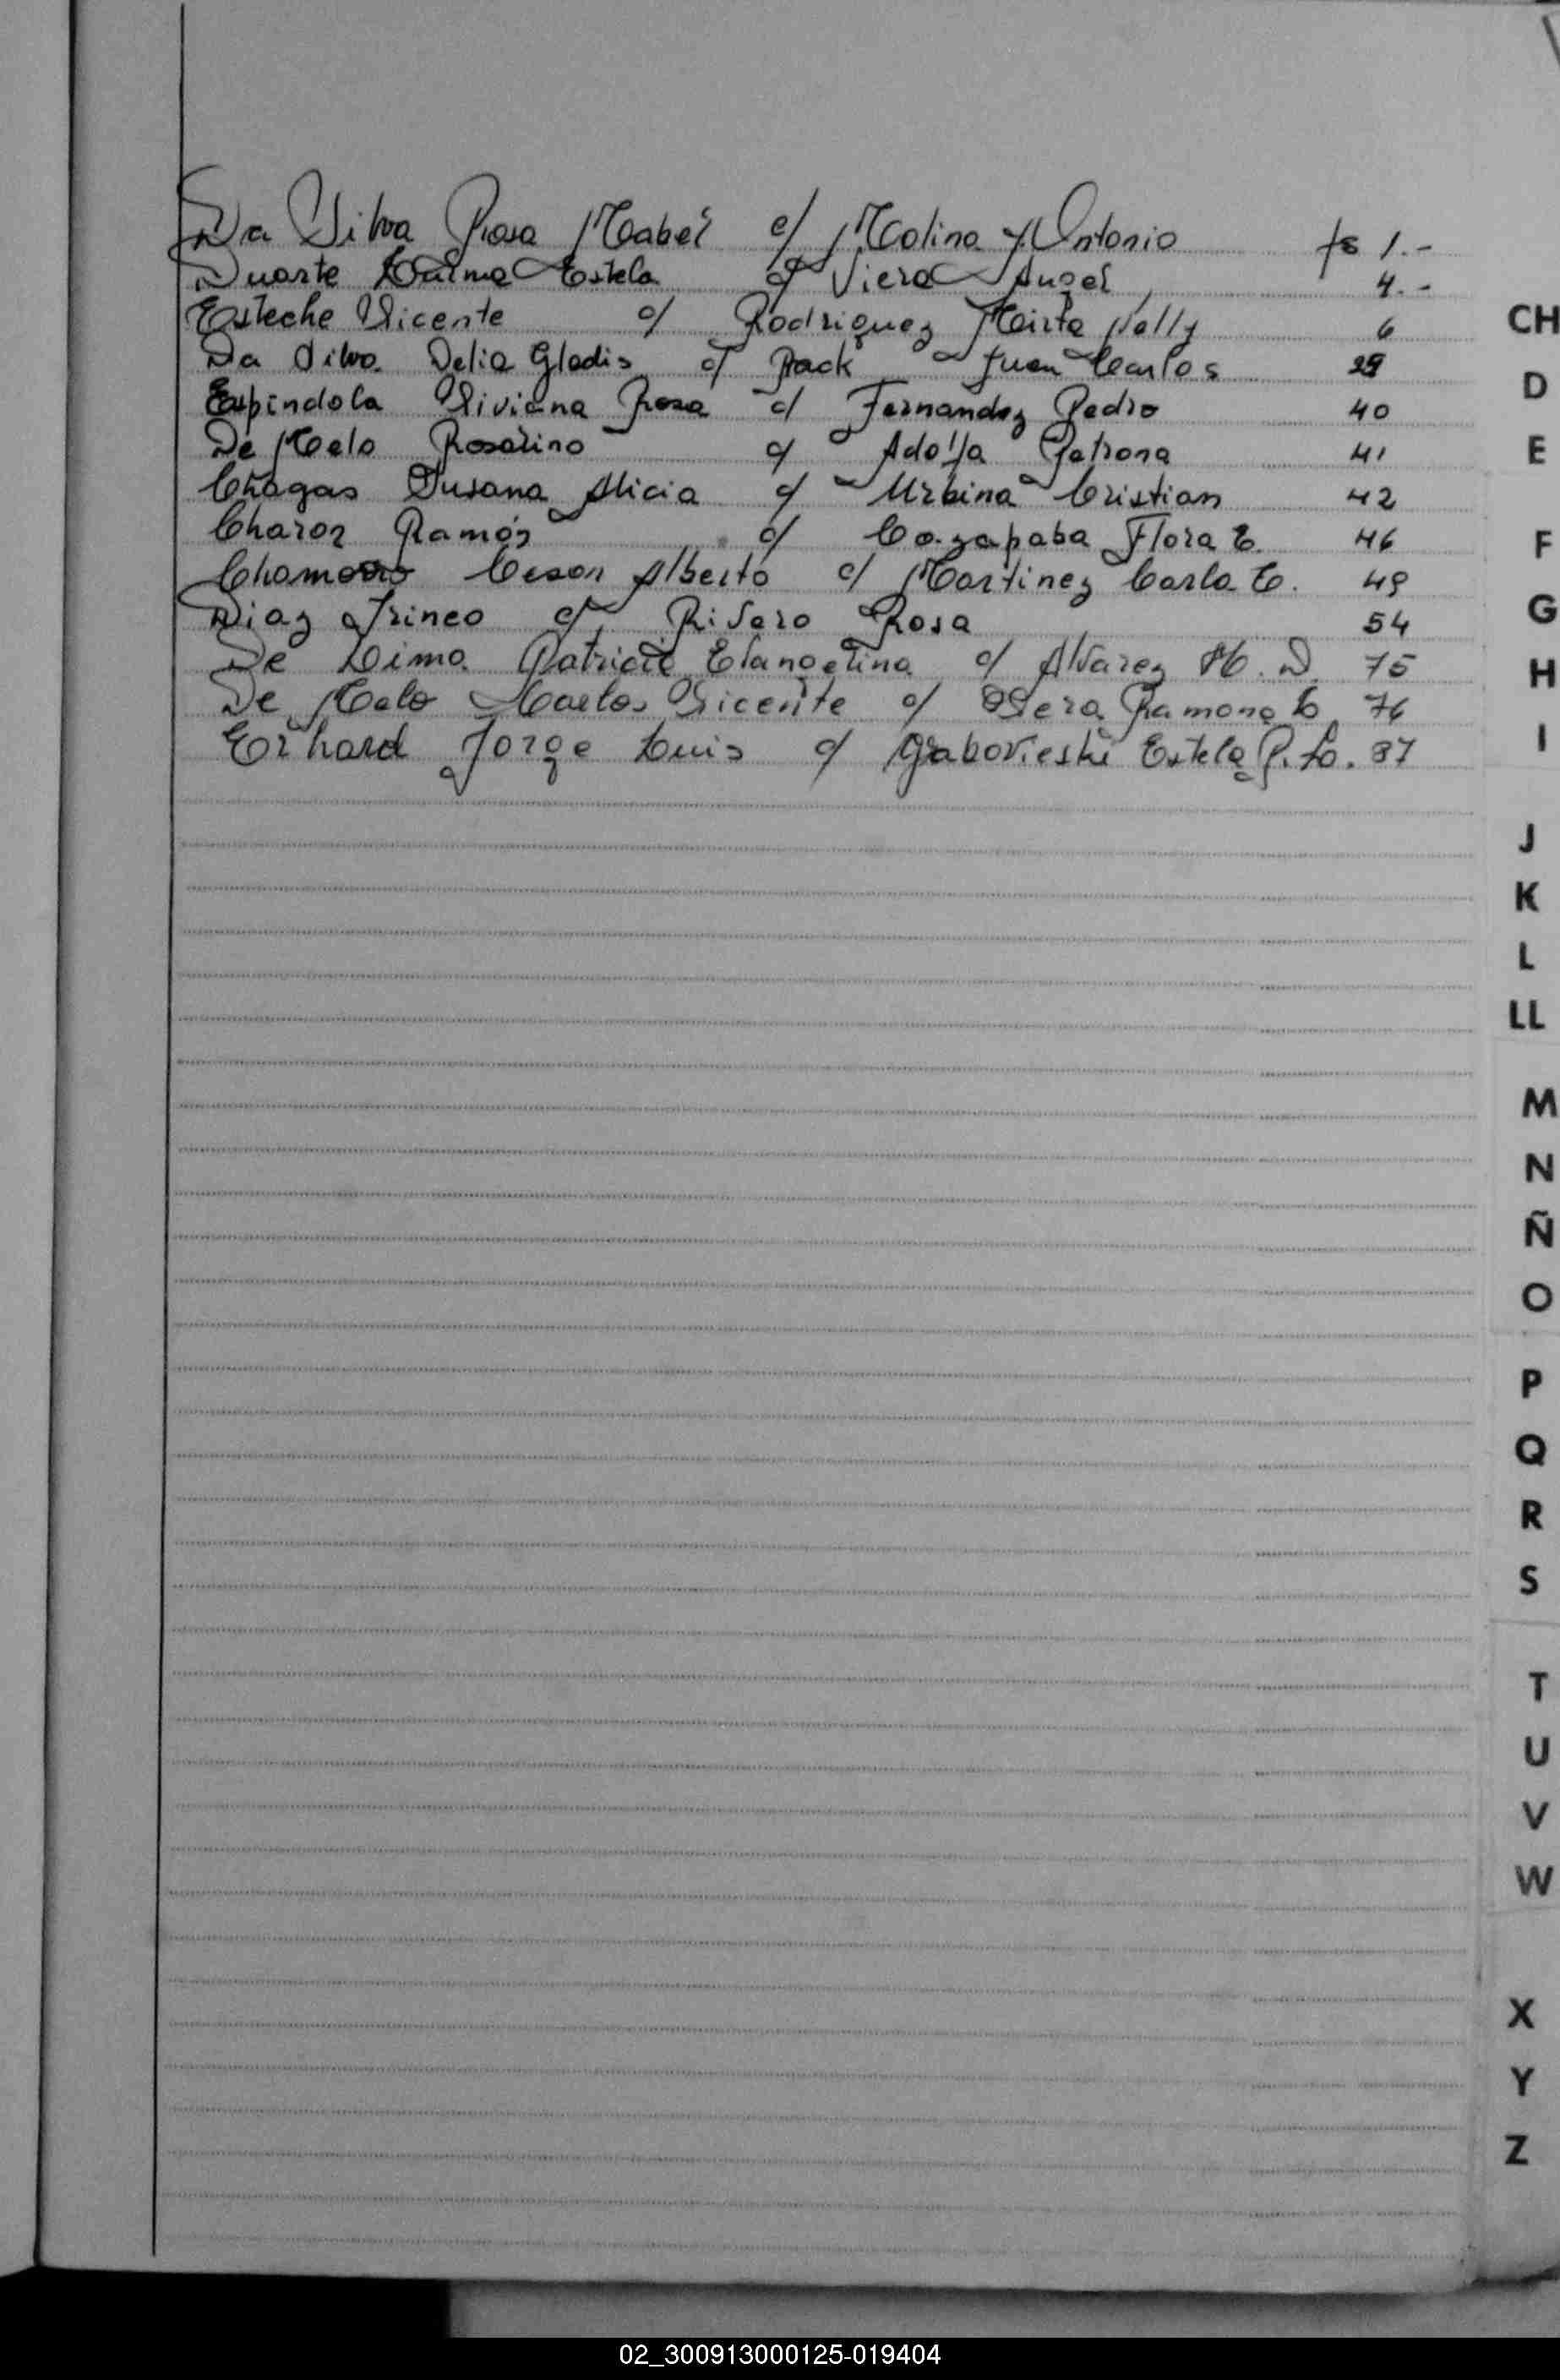 Da Silva Rosa Mabel c/ Molina J. Antonio fs 1.-
Duarte Dalma Estela c/ Viera Angel 4.-
Esteche Vicente c/ Rodriguez Mirta Nelly 6
Da Silva Delia Gladis c/ Pack Juan Carlos 29
Espindola Viviana Rosa c/ Fernandez Pedro 40
De Melo Rosalino c/ Adolfa Petrona 41
Chagas Susana Alicia c/ Urbina Cristian 42
Ramón c/ Flora E. 46
Chamorro Cesar Alberto c/ Martinez Carla E. 49
Diaz Irineo c/ Rivero Rosa 54
De Lima Patricia Evangelina c/ Alvarez H. D. 75
De Melo Carlos Vicente c/ Vera Ramona E. 76
Erhard Jorge Luis c/ Estela 87
CH
D
E
F
G
H
I
J
K
L
LL
M
N
Ñ
O
P
Q
R
S
T
U
V
W
X
Y
Z
02_300913000125-019404